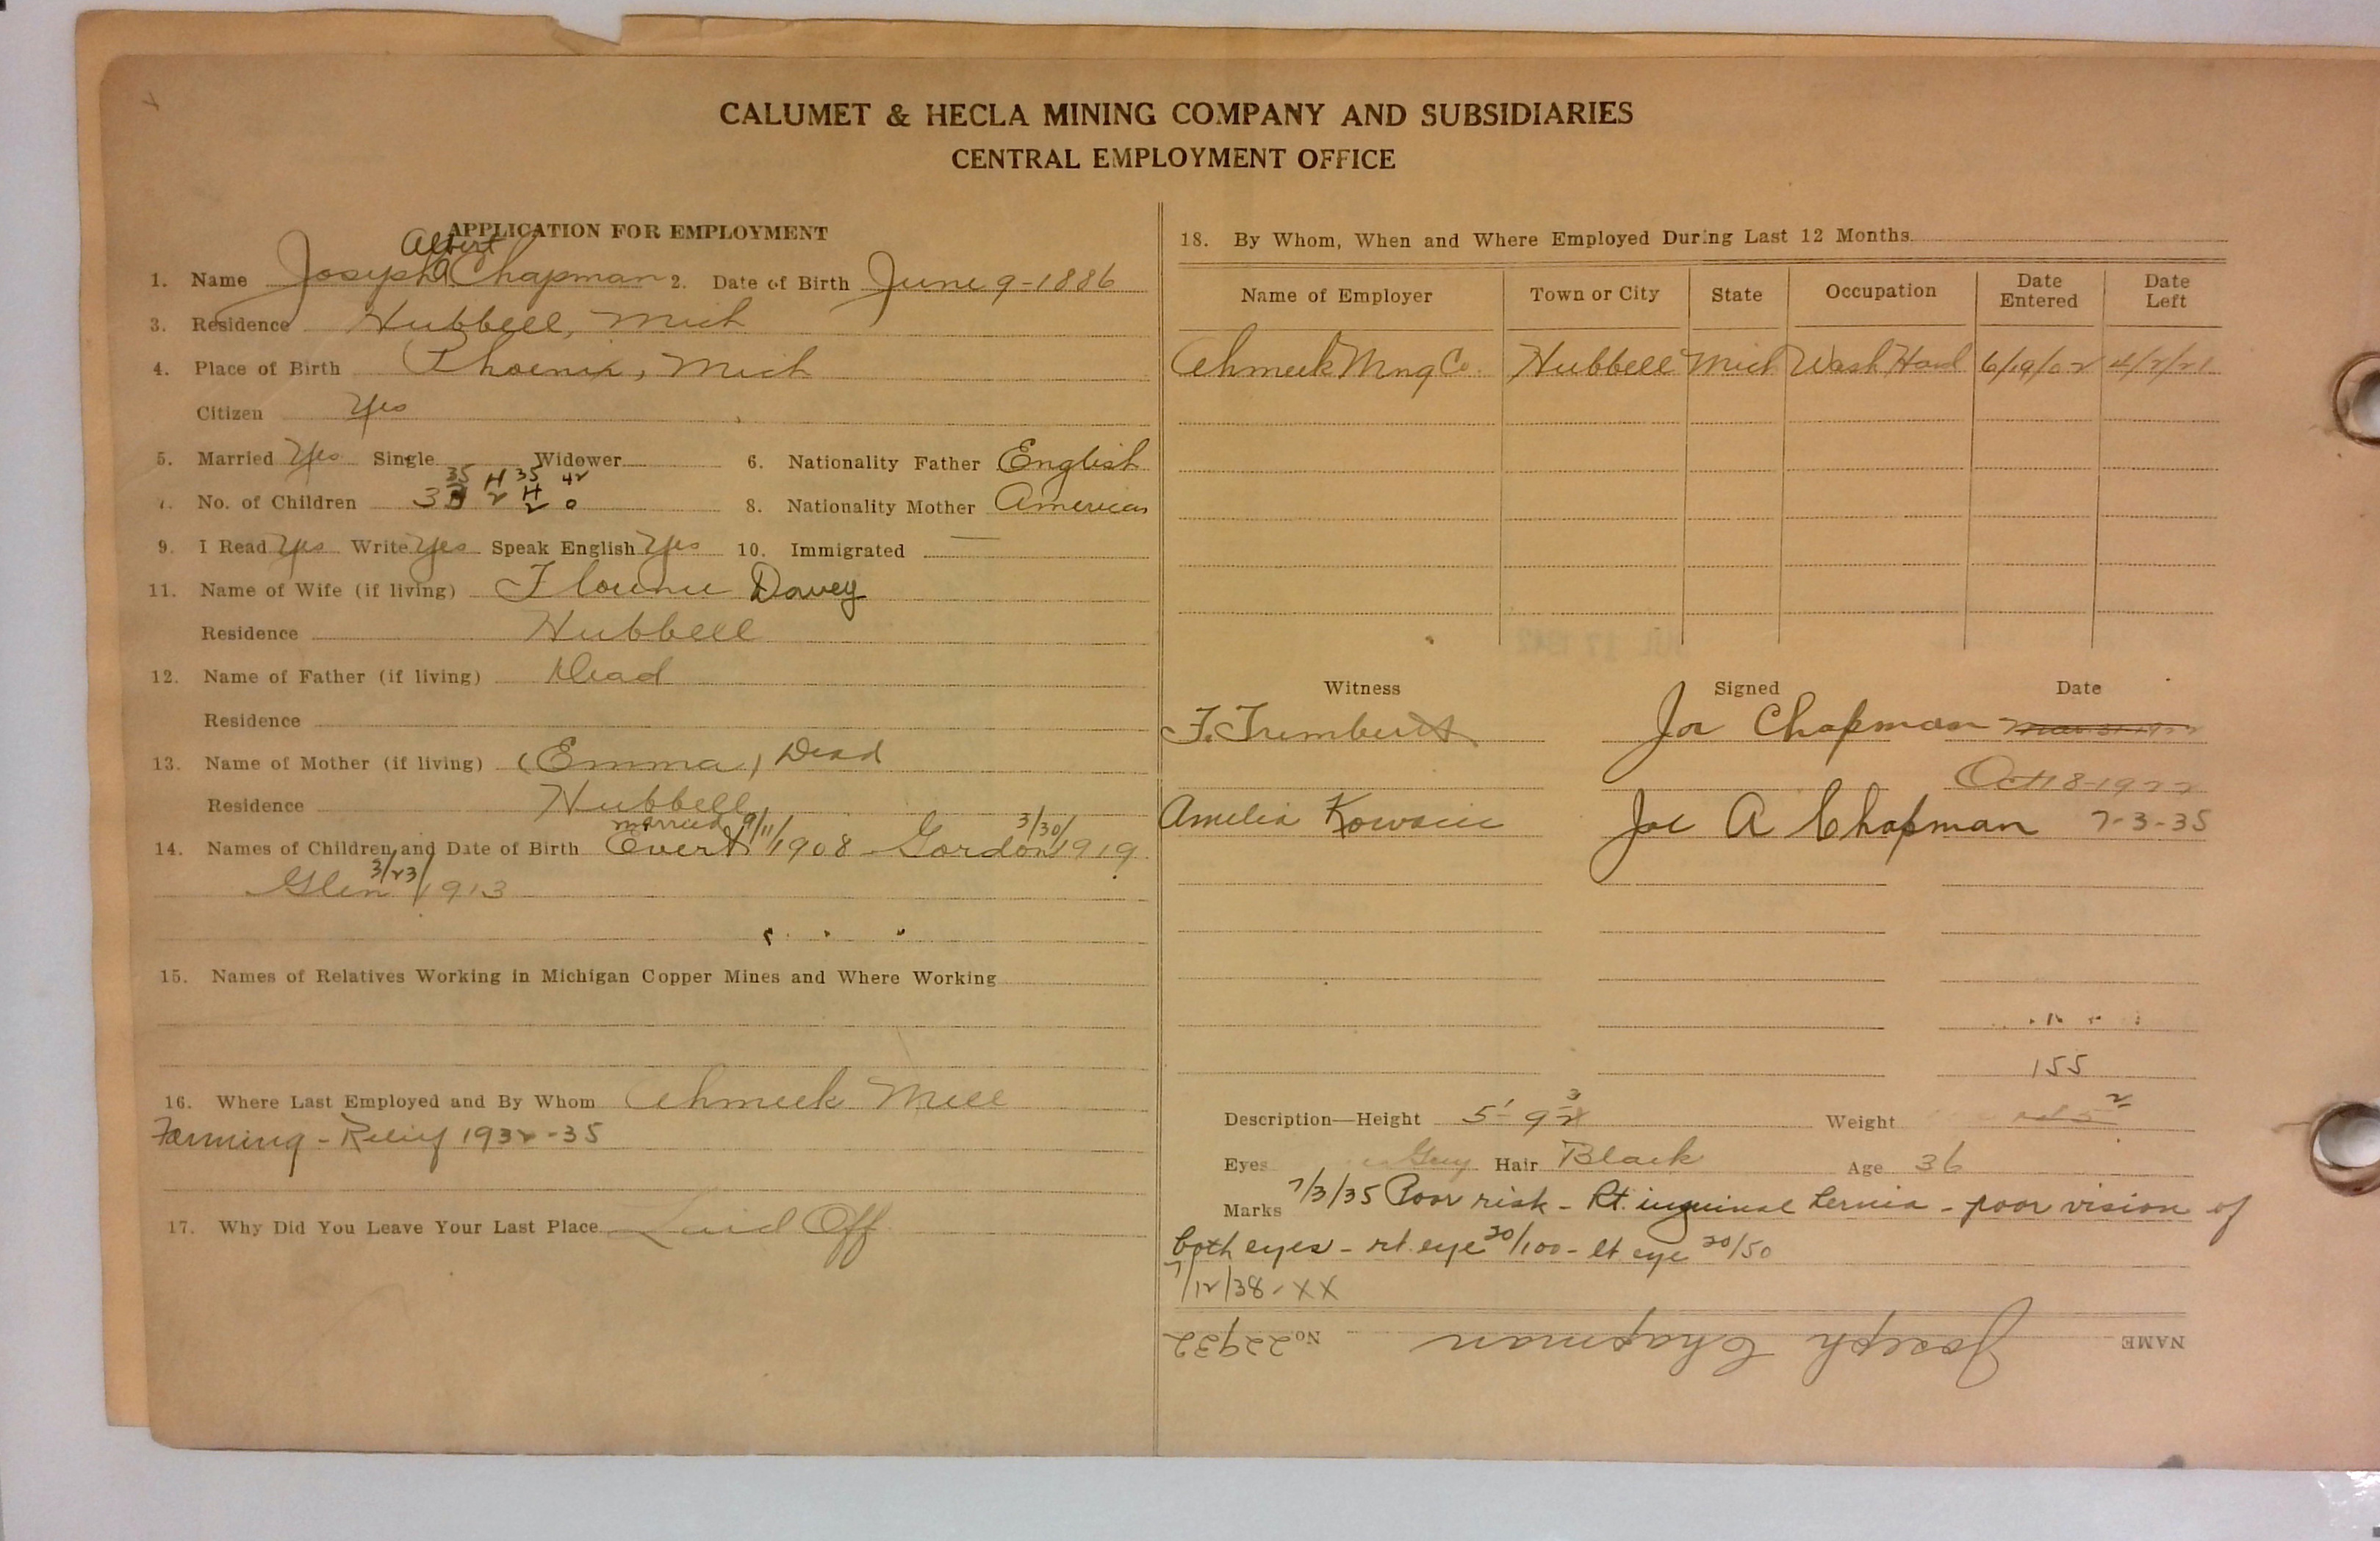 CALUMET & HECLA MINING COMPANY AND SUBSIDIARIES
CENTRAL EMPLOYMENT OFFICE
APPLICATION FOR EMPLOYMENT
Albert
1. Name Joseph A Chapman 2. Date of Birth June 9-1886
3. Residence Hubbell, Mich
4. Place of Birth Phoenix, Mich
Citizen Yes
5. Married Yes Single Widower 6. Nationality Father English
35 H 35 42
7. No. of Children 3 3 2 H 2 0 8. Nationality Mother American
9. I Read Yes Write Yes Speak English Yes 10. Immigrated —
11. Name of Wife (if living) Florence Davey
Residence Hubbell
12. Name of Father (if living) Dead
Residence
13. Name of Mother (if living) (Emma) Dead
Residence Hubbell
married 9/11/ 3/30/
14. Names of Children and Date of Birth Evert 1908 - Gordon 1919
Glen 3/23/1913
15. Names of Relatives Working in Michigan Copper Mines and Where Working
16. Where Last Employed and By Whom Ahmeek Mill
Farming - Relief 1932-35
17. Why Did You Leave Your Last Place Laid Off
18. By Whom, When and Where Employed During Last 12 Months
Name of Employer Town or City State Occupation Date Entered Date Left
Ahmeek Mng Co. Hubbell Mich Wash Hand 6/19/02 4/2/21
Witness Signed Date
Joe Chapman
Oct 18-1922
Amelia Joe A Chapman 7-3-35
155
Description—Height 5'-9 3 Weight 2
Eyes Grey Hair Black Age 36
Marks 7/3/35 Poor risk - Rt. inguinal hernia - poor vision of
both eyes - rt. eye 20/100 - lt eye 20/50
7/12/38 - XX
NAME Joseph Chapman No 22932